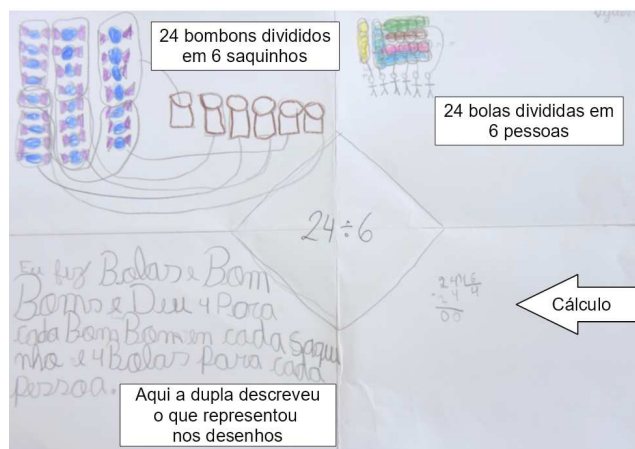 24 bombons divididos
em 6 saquinhos
24 bolas divididas em
6 pessoas
24÷6
Eu fiz Bolas e Bom
Boms e Deu 4 Para
cada Bom Bom en cada saqui
nho e 4 Bolas Para cada
pessoa.
24 6
-24 4
00
Cálculo
Aqui a dupla descreveu
o que representou
nos desenhos